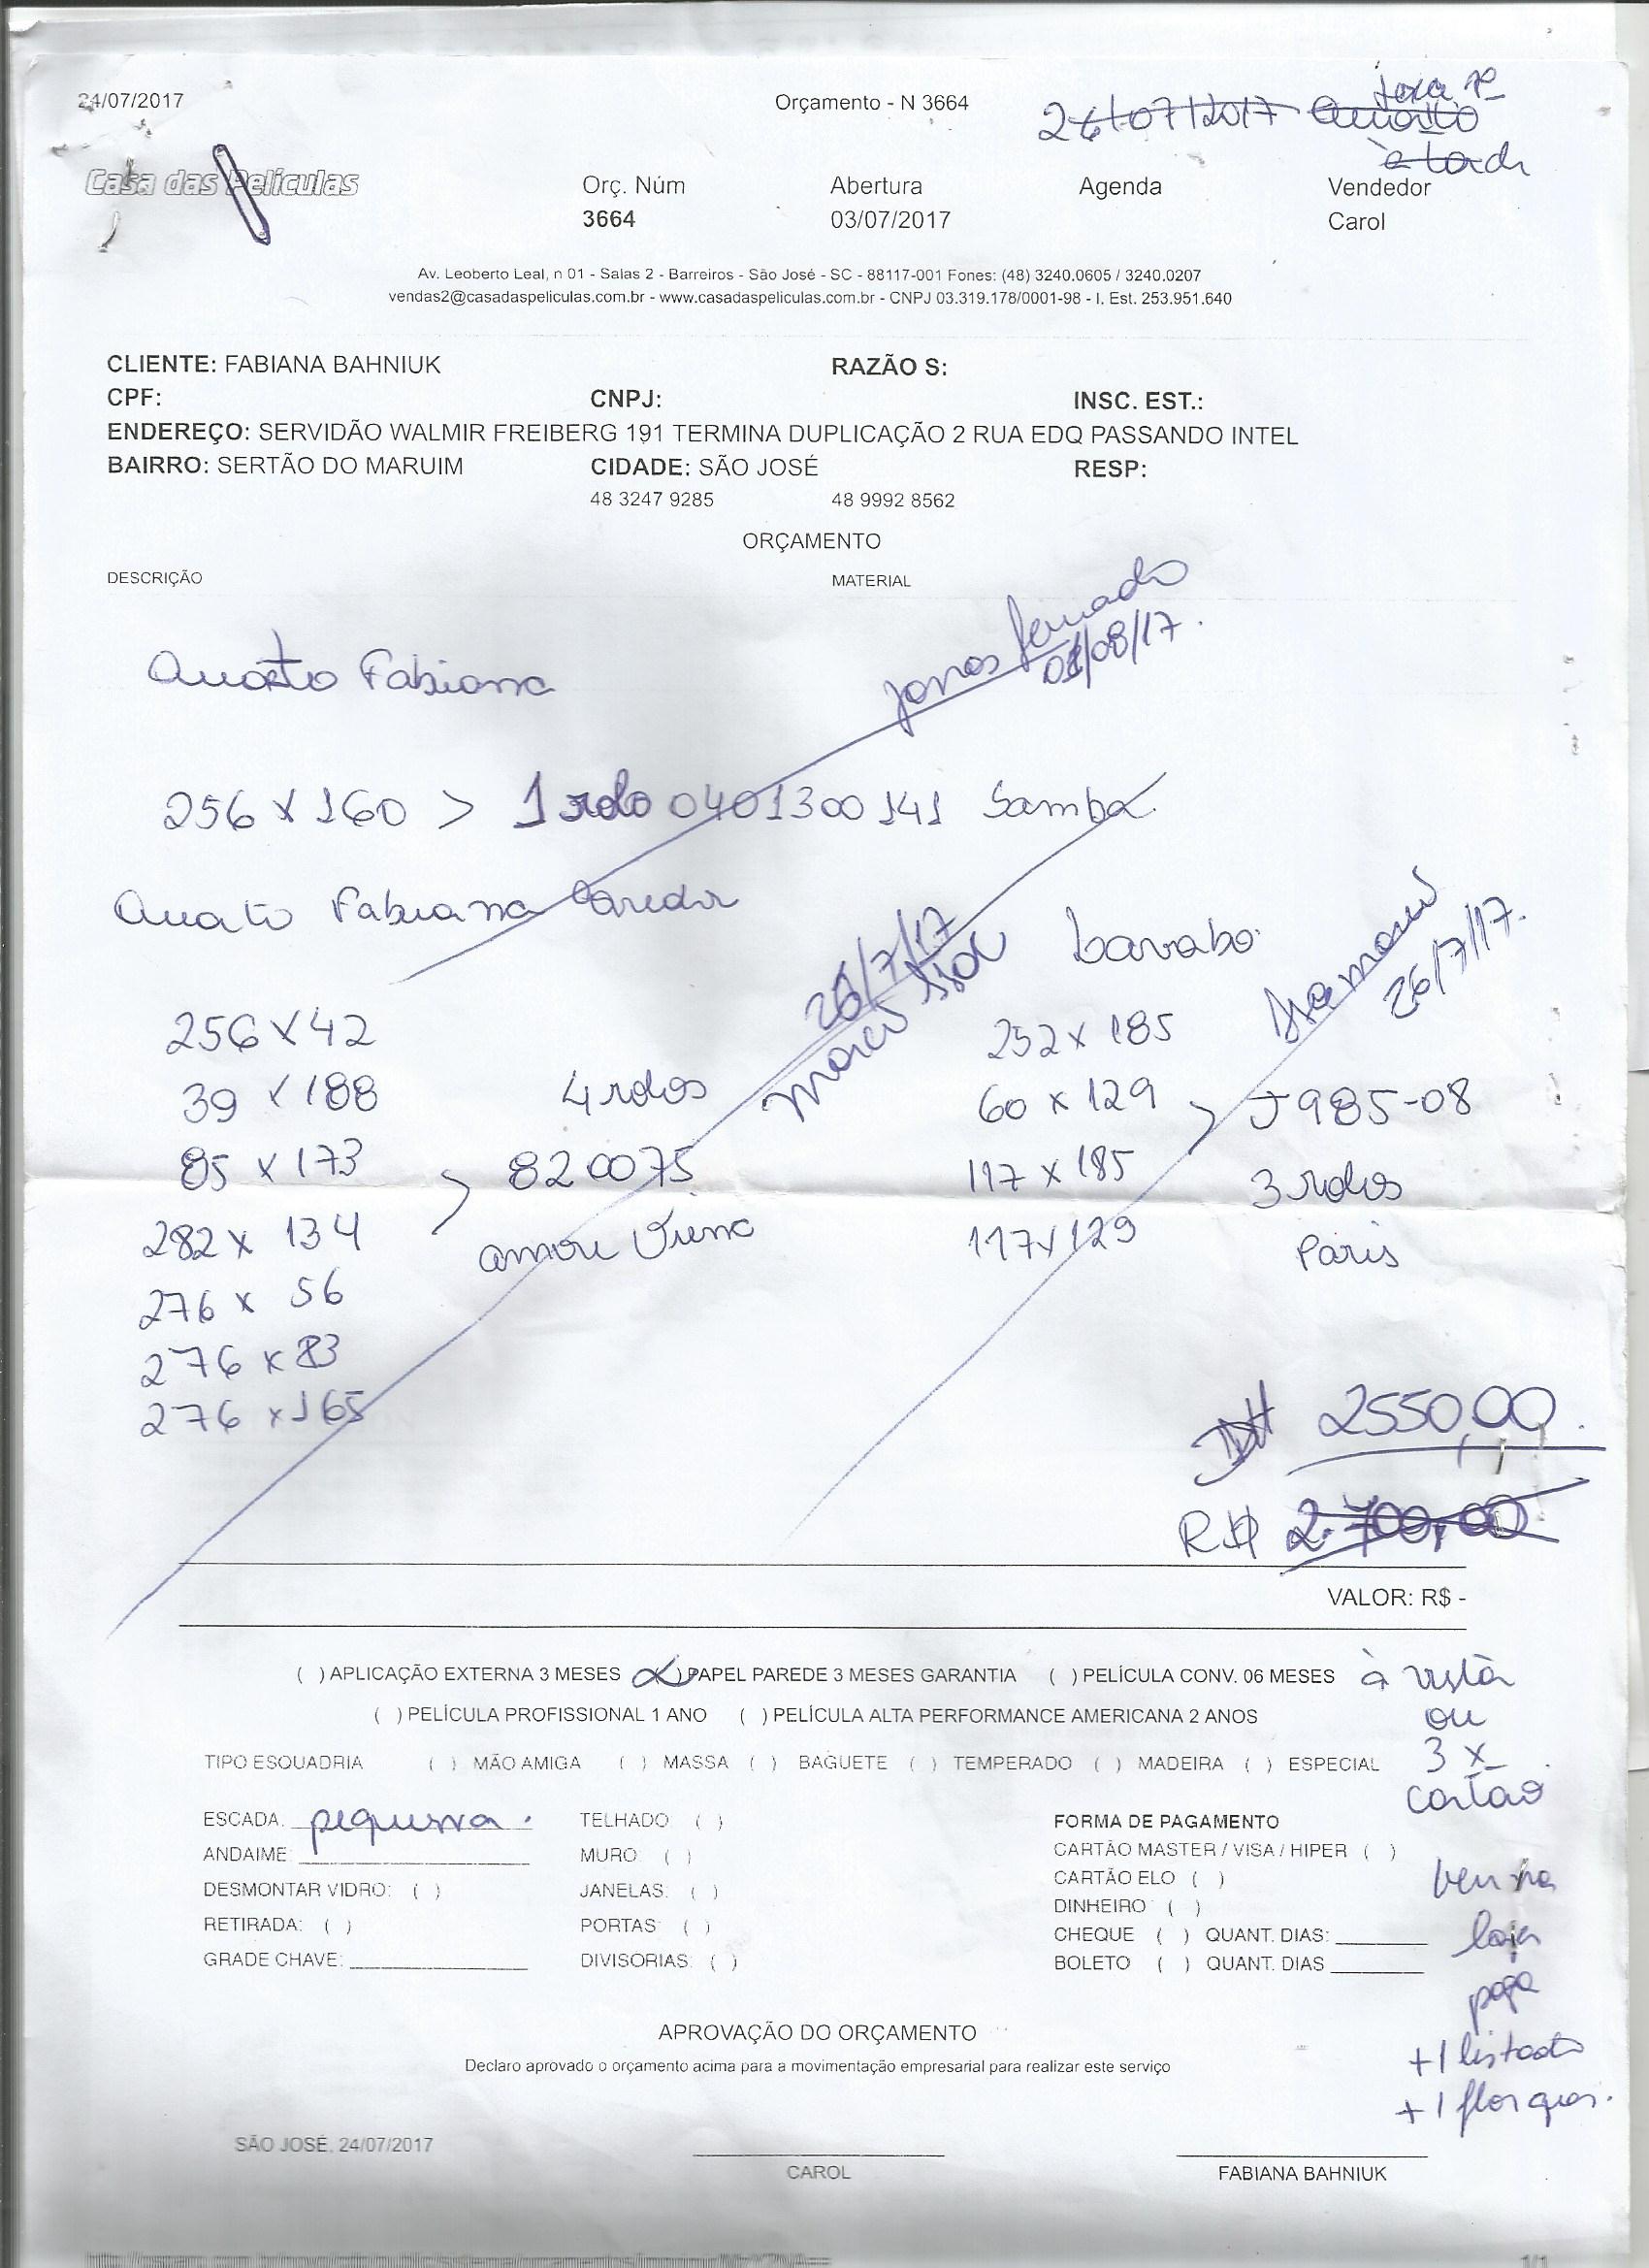 24/07/2017 Orçamento - N 3664
26/07/2017 Quarto
Casa das Películas
Orç. Núm Abertura Agenda Vendedor
3664 03/07/2017 Carol
Av. Leoberto Leal, n 01 - Salas 2 - Barreiros - São José - SC - 88117-001 Fones: (48) 3240.0605 / 3240.0207
vendas2@casadaspeliculas.com.br - www.casadaspeliculas.com.br - CNPJ 03.319.178/0001-98 - I. Est. 253.951.640
CLIENTE: FABIANA BAHNIUK RAZÃO S:
CPF: CNPJ: INSC. EST.:
ENDEREÇO: SERVIDÃO WALMIR FREIBERG 191 TERMINA DUPLICAÇÃO 2 RUA EDQ PASSANDO INTEL
BAIRRO: SERTÃO DO MARUIM CIDADE: SÃO JOSÉ RESP:
48 3247 9285 48 9992 8562
ORÇAMENTO
DESCRIÇÃO MATERIAL
Quarto Fabiana
/08/17.
256 x 160 > 1 rolo 0401300141 Samba
Quarto Fabiana Paredes
26/7/17
Lavabo
26/7/17.
256 x 42 252 x 185
39 x 188 4 rolos 60 x 129 > J985-08
85 x 173 > 820075 117 x 185 3 rolos
282 x 134 117 x 129 Paris
276 x 56
276 x 83
276 x 165
2550,00
R$ 2.700,00
VALOR: R$ -
( ) APLICAÇÃO EXTERNA 3 MESES (x) PAPEL PAREDE 3 MESES GARANTIA ( ) PELÍCULA CONV. 06 MESES à vista
( ) PELÍCULA PROFISSIONAL 1 ANO ( ) PELÍCULA ALTA PERFORMANCE AMERICANA 2 ANOS ou
TIPO ESQUADRIA ( ) MÃO AMIGA ( ) MASSA ( ) BAGUETE ( ) TEMPERADO ( ) MADEIRA ( ) ESPECIAL 3 x
cartão
ESCADA: pequena. TELHADO ( ) FORMA DE PAGAMENTO
ANDAIME: MURO: ( ) CARTÃO MASTER / VISA / HIPER ( )
DESMONTAR VIDRO: ( ) JANELAS: ( ) CARTÃO ELO ( ) vem na
DINHEIRO ( )
RETIRADA: ( ) PORTAS: ( ) CHEQUE ( ) QUANT. DIAS: loja
GRADE CHAVE: DIVISORIAS: ( ) BOLETO ( ) QUANT. DIAS
paga
APROVAÇÃO DO ORÇAMENTO
+1 listado
Declaro aprovado o orçamento acima para a movimentação empresarial para realizar este serviço
+1
SÃO JOSÉ, 24/07/2017
CAROL FABIANA BAHNIUK